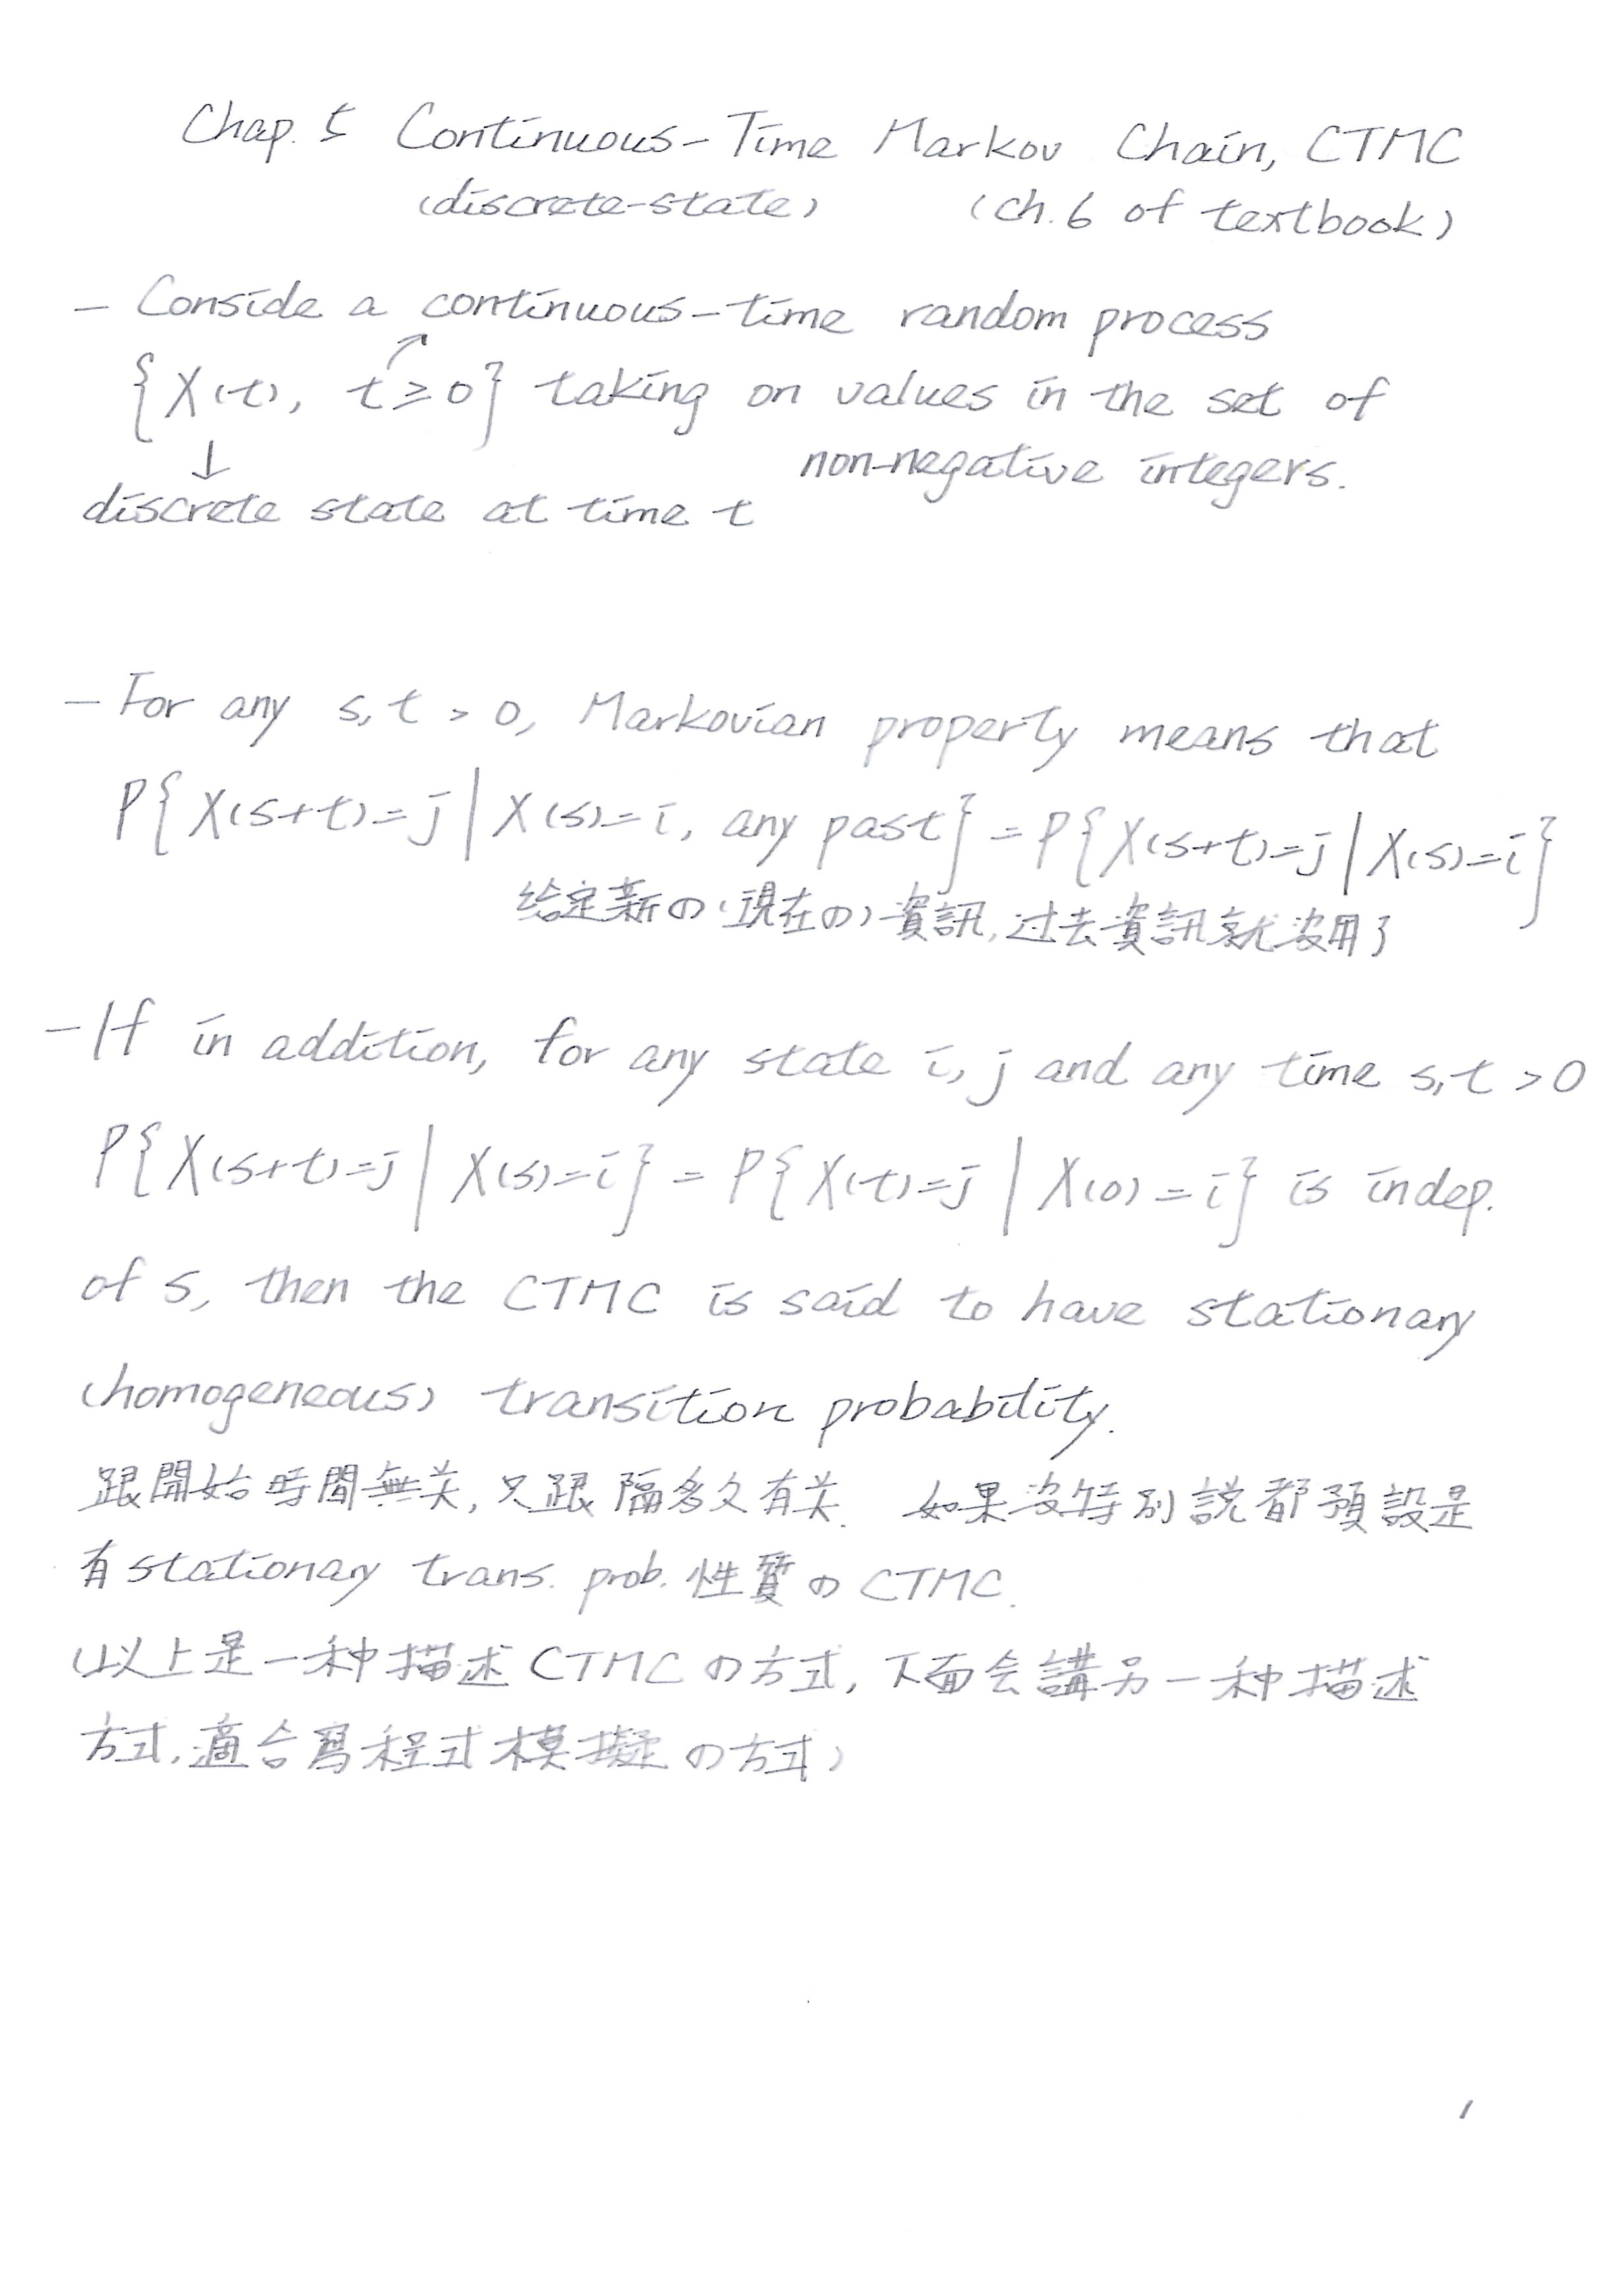 Chap. 5 Continuous-Time Markov Chain, CTMC
(discrete-state) (ch.6 of textbook)
- Conside a continuous-time random process
{X(t), t≥0} taking on values in the set of
↓ non-negative integers.
discrete state at time t
- For any s,t > 0, Markovian property means that
P{X(s+t)=j | X(s)=i, any past} = P{X(s+t)=j | X(s)=i}
给定新の(現在の)資訊,过去資訊就沒用了
- If in addition, for any state i, j and any time s,t > 0
P{X(s+t)=j | X(s)=i} = P{X(t)=j | X(0)=i} is indep.
of s, then the CTMC is said to have stationary
(homogeneous) transition probability.
跟開始時間無关,只跟隔多久有关. 如果沒特別説都預設是
有stationary trans. prob. 性質の CTMC.
(以上是一种描述 CTMC の方式,下面会講另一种描述
方式,適合寫程式模擬の方式)
1